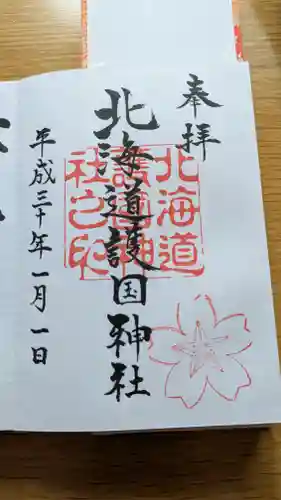 奉拝
北海道護国神社
北海道護國神社之印
平成三十年一月一日